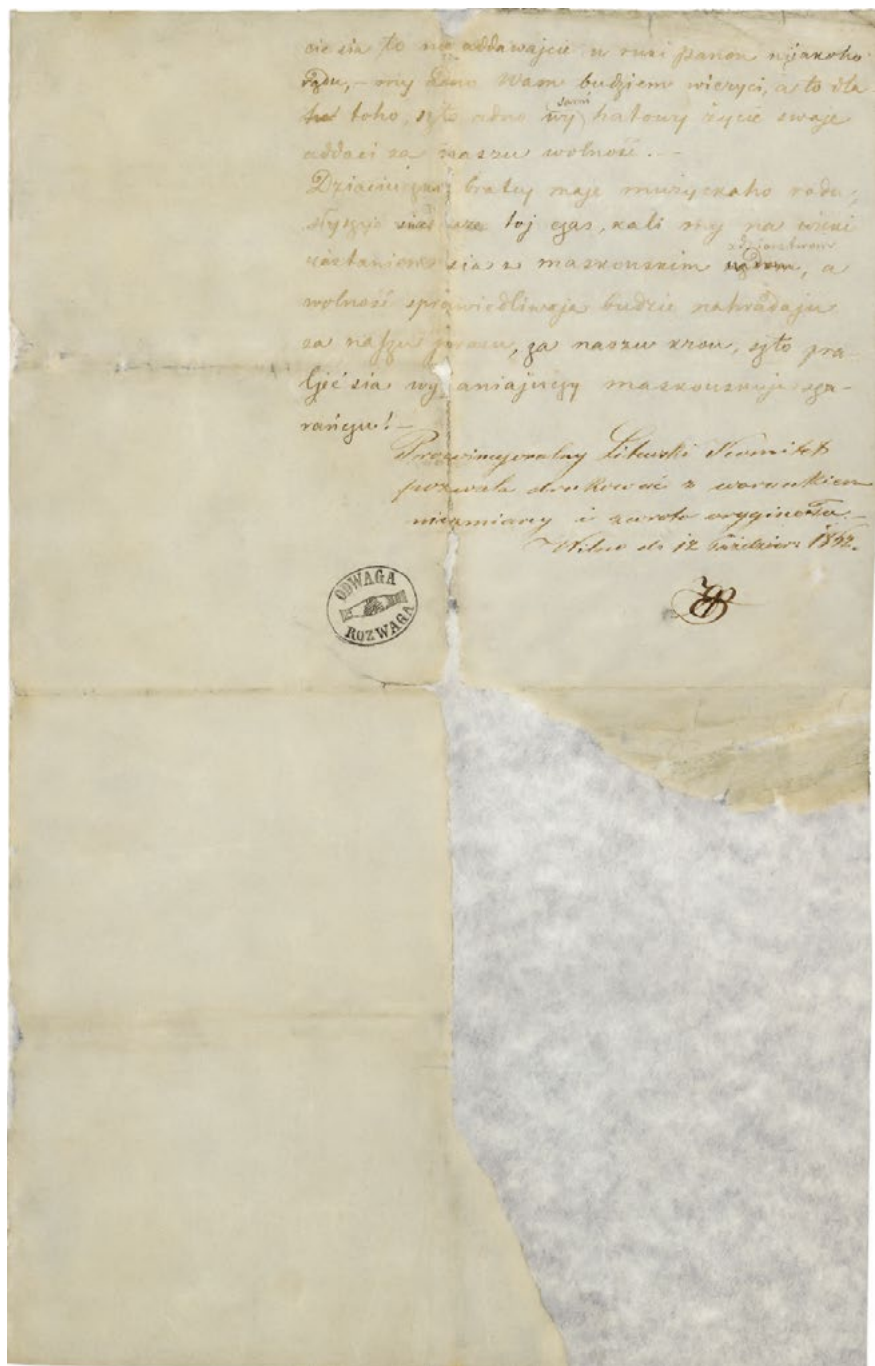 cie sia to nie addawajcie u ruki panou nijakoho
rządu, – my adno Wam budziem wieryci, a to dla
toho, szto adno wy sami hatowy życie swaje
addaci za naszu wolność. –
bratcy maje mużyckaho rodu,
toj czas, kali my na wieki
sia z maskouskim zdzierstwom, a
wolność sprawiedliwaja budzie nahradaju
za naszu pracu, za naszu krou, szto pra-
ljeć sia wyhaniajuczy maskouskuju sza-
rańczu! –
Prowincyonalny Litewski Komitet
pozwala drukować z warunkiem
niezmiany i zwrotu oryginału. –
Wilno d. 12 Październ: 1862.
ODWAGA
ROZWAGA